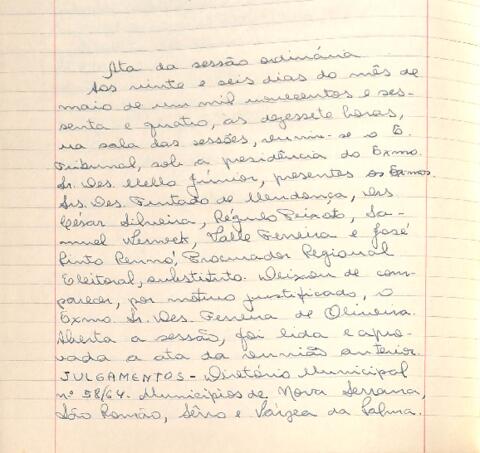 Ata da sessão ordinária
Aos vinte e seis dias do mês de
maio de um mil novecentos e ses-
senta e quatro, às dezessete horas,
na sala das sessões, reuniu-se o E.
Tribunal, sob a presidência do Exmo.
Sr. Des. Mello Júnior, presentes os Exmos.
Srs. Des. Furtado de Mendonça, Drs
César Silveira, Régulo Peixoto, Sa-
muel Werneck, Valle Ferreira e José
Pinto Rennó, Procurador Regional
Eleitoral, substituto. Deixou de com-
parecer, por motivo justificado, o
Exmo. Sr. Des. Ferreira de Oliveira.
Aberta a sessão, foi lida e apro-
vada a ata da reunião anterior.
JULGAMENTOS - Diretório Municipal
nº 58/64. Municípios de Nova Serrana,
São Romão, Sêrro e Várzea da Palma.